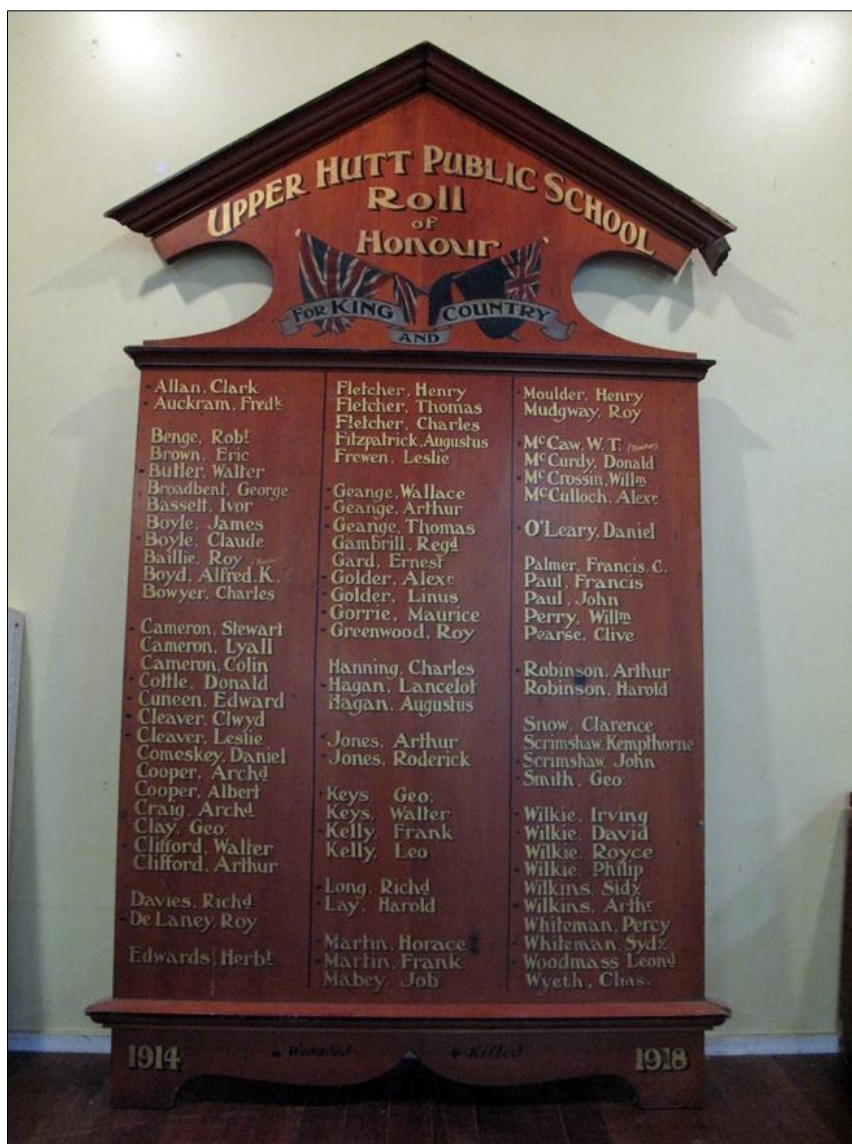 UPPER HUTT PUBLIC SCHOOL
Roll
of
Honour
FOR KING
AND
COUNTRY
Allan, Clark
Auckram, Fredk
Benge, Robt
Brown, Eric
Butler, Walter
Broadbent, George
Bassett, Ivor
Boyle, James
Boyle, Claude
Baillie, Roy (Teacher)
Boyd, Alfred. K.
Bowyer, Charles
Cameron, Stewart
Cameron, Lyall
Cameron, Colin
Cottle, Donald
Cuneen, Edward
Cleaver, Clwyd
Cleaver, Leslie
Comeskey, Daniel
Cooper, Archd
Cooper, Albert
Craig, Archd
Clay, Geo:
Clifford, Walter
Clifford, Arthur
Davies, Richd
De Laney, Roy
Edwards, Herbt
Fletcher, Henry
Fletcher, Thomas
Fletcher, Charles
Fitzpatrick, Augustus
Frewen, Leslie
Geange, Wallace
Geange, Arthur
Geange, Thomas
Gambrill, Regd
Gard, Ernest
Golder, Alexr
Golder, Linus
Gorrie, Maurice
Greenwood, Roy
Hanning, Charles
Hagan, Lancelot
Hagan, Augustus
Jones, Arthur
Jones, Roderick
Keys, Geo:
Keys, Walter
Kelly, Frank
Kelly, Leo
Long, Richd
Lay, Harold
Martin, Horace
Martin, Frank
Mabey, Job
Moulder, Henry
Mudgway, Roy
McCaw, W. T. (Teacher)
McCurdy, Donald
McCrossin, Willm
McCulloch, Alexr
O'Leary, Daniel
Palmer, Francis. C.
Paul, Francis
Paul, John
Perry, Willm
Pearse, Clive
Robinson, Arthur
Robinson, Harold
Snow, Clarence
Scrimshaw, Kempthorne
Scrimshaw, John
Smith, Geo:
Wilkie, Irving
Wilkie, David
Wilkie, Royce
Wilkie, Philip
Wilkins, Sidy
Wilkins, Arthr
Whiteman, Percy
Whiteman, Sydy
Woodmass Leond
Wyeth, Chas.
1914 - Wounded + Killed 1918